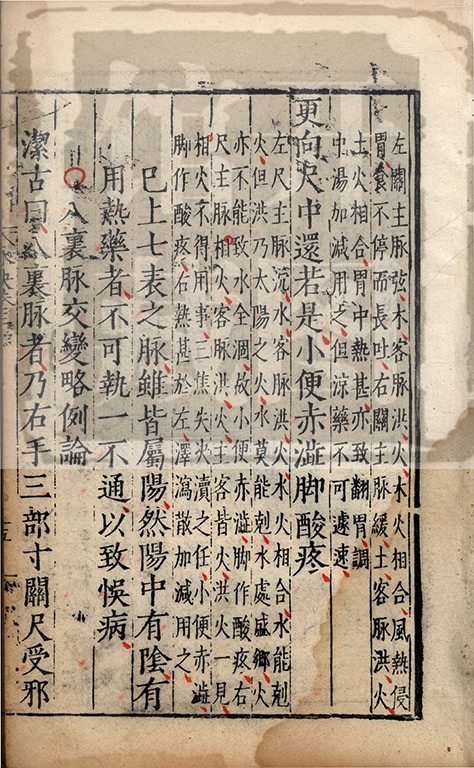 左關主脉弦木客脉洪火木火相合風熱侵
胃食不停而長吐右關主脉緩土客脉洪火
土火相合胃中熱甚亦致翻胃調
中湯加減用之但涼藥不可遽速
更向尺中還若是小便赤澁脚酸疼
左尺主脉沉水客脉洪火水火相合水能剋
火但洪乃太陽之火水莫能剋水處盛鄉火
亦不能致水全涸故小便赤澁脚作酸疼右
尺主脉相火客脉洪火主客皆火洪火一見
相火不得用事三焦失火瀆之任小便赤澁
脚作酸疼右熱甚於左澤瀉散加減用之
已上七表之脉雖皆屬陽然陽中有陰有
用熱藥者不可執一不通以致悞病
○八裏脉交變略例論
潔古曰八裏脉者乃右手三部寸關尺受邪